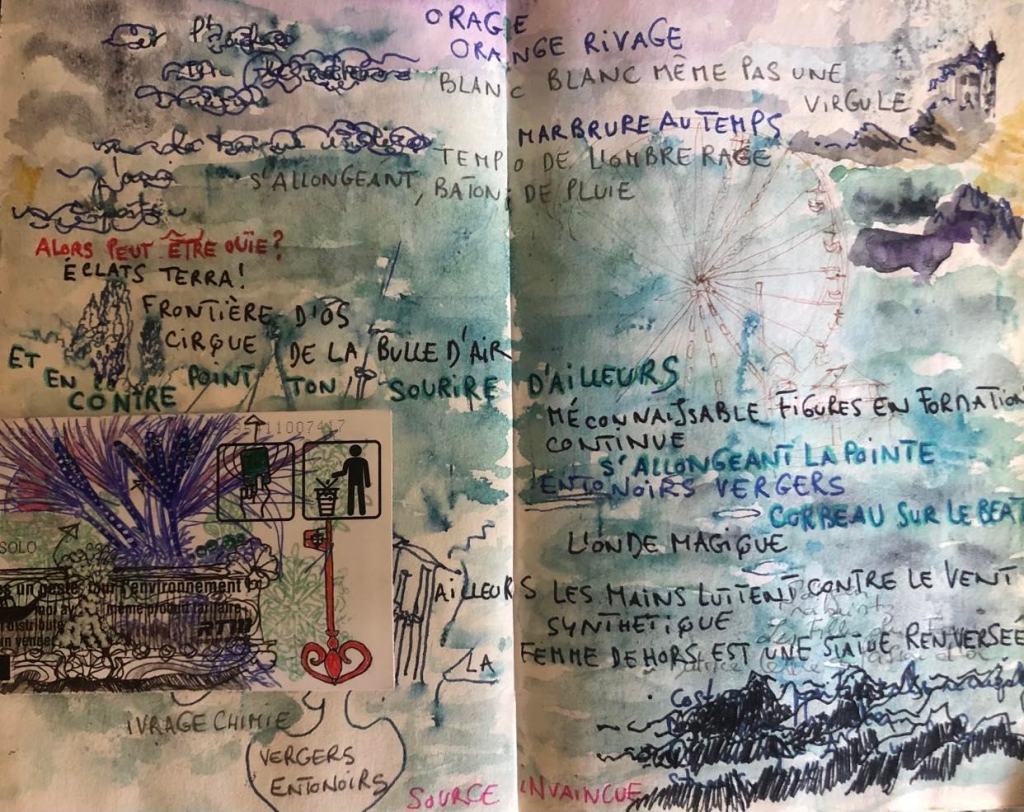 ORAGE
ORANGE RIVAGE
BLANC BLANC MÊME PAS UNE
VIRGULE
MARBRURE AU TEMPS
TEMPO DE L'OMBRE RAGE
S'ALLONGEANT, BATON DE PLUIE
ALORS PEUT ÊTRE OUÏE?
ECLATS TERRA!
FRONTIÈRE D'OS
CIRQUE DE LA BULLE D'AIR
ET EN CONTRE POINT TON SOURIRE D'AILLEURS
MÉCONNAISSABLE FIGURES EN FORMATION
CONTINUE
S'ALLONGEANT LA POINTE
ENTONOIRS VERGERS
CORBEAU SUR LE BEAT
L'ONDE MAGIQUE
11007417
SOLO
un geste pour l'environnement
même produit
RTM
AILLEURS LES MAINS LUTTENT CONTRE LE VENT
SYNTHETIQUE
LA FEMME DEHORS EST UNE STATUE RENVERSÉE
IVRAGE CHIMIE
VERGERS
ENTONOIRS
SOURCE INVAINCUE